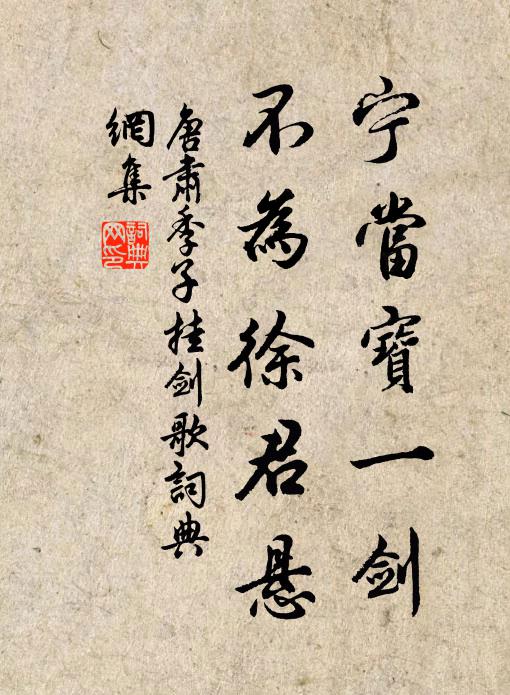 宁當寶一剑
不為徐君悬
唐肅季子挂剑歌詞典
網集
詞典
网印